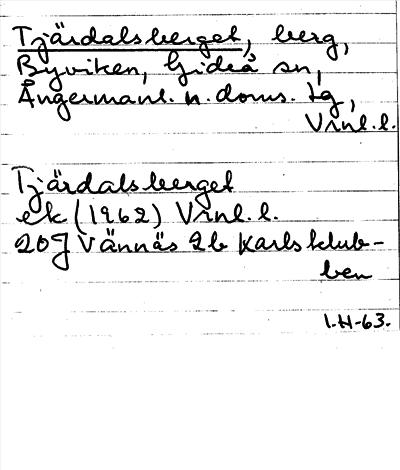 Tjärdalsberget, berg,
Byviken, Gideå sn,
Ångermanl. n. doms. tg,
Vnl.l.
Tjärdalsberget
ek (1962) Vnl. l.
20J Vännäs 2b Karlsklub-
ben
I.H-63.